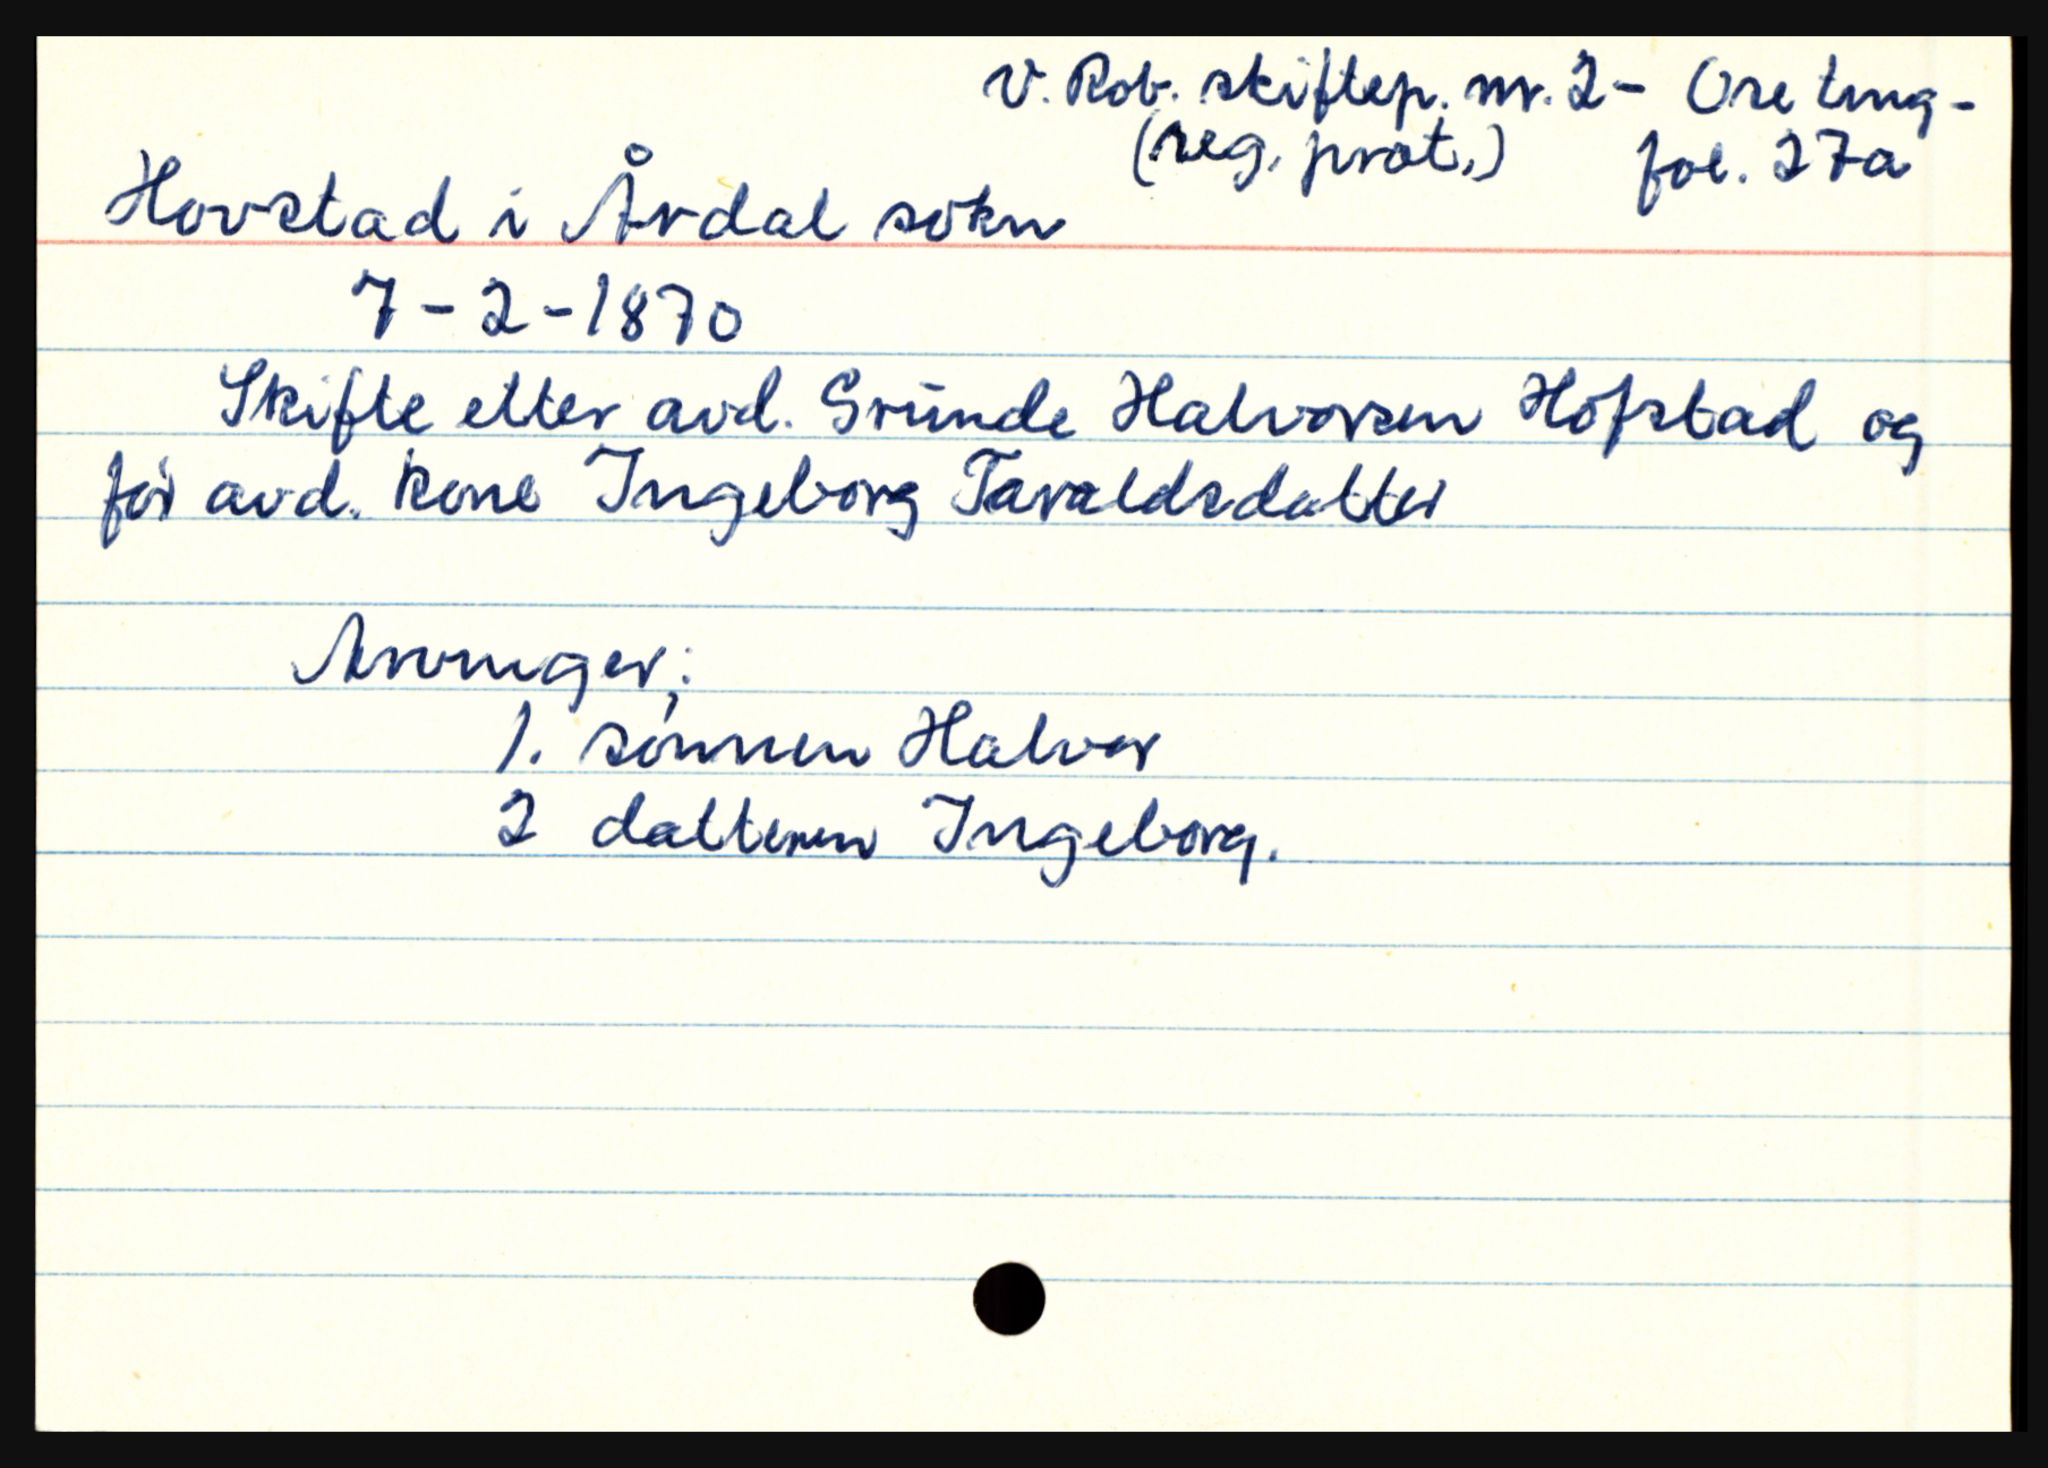 V. Rob. skiftep. nr. 2 - Ose ting -
(reg. prot.) fol. 27a
Hovstad i Årdal sokn
7 - 2 - 1870
Skifte etter avd. Grunde Halvorsen Hofstad og
før avd. kone Ingeborg Taraldsdatter
Arvinger:
1. sønnen Halvor
2 datteren Ingeborg.